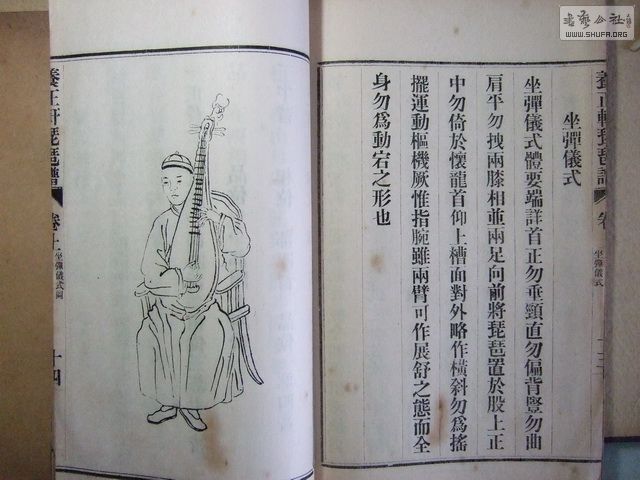 书艺公社
WWW.SHUFA.ORG
養正軒琵琶譜
卷
坐彈儀式
坐彈儀式
坐彈儀式體要端詳首正勿垂頸直勿偏背豎勿曲
肩平勿拽兩膝相並兩足向前將琵琶置於股上正
中勿倚於懷龍首仰上槽面對外略作橫斜勿爲搖
擺運動樞機厥惟指腕雖兩臂可作展舒之態而全
身勿爲動宕之形也
養正軒琵琶譜
卷上
坐彈儀式圖
十四